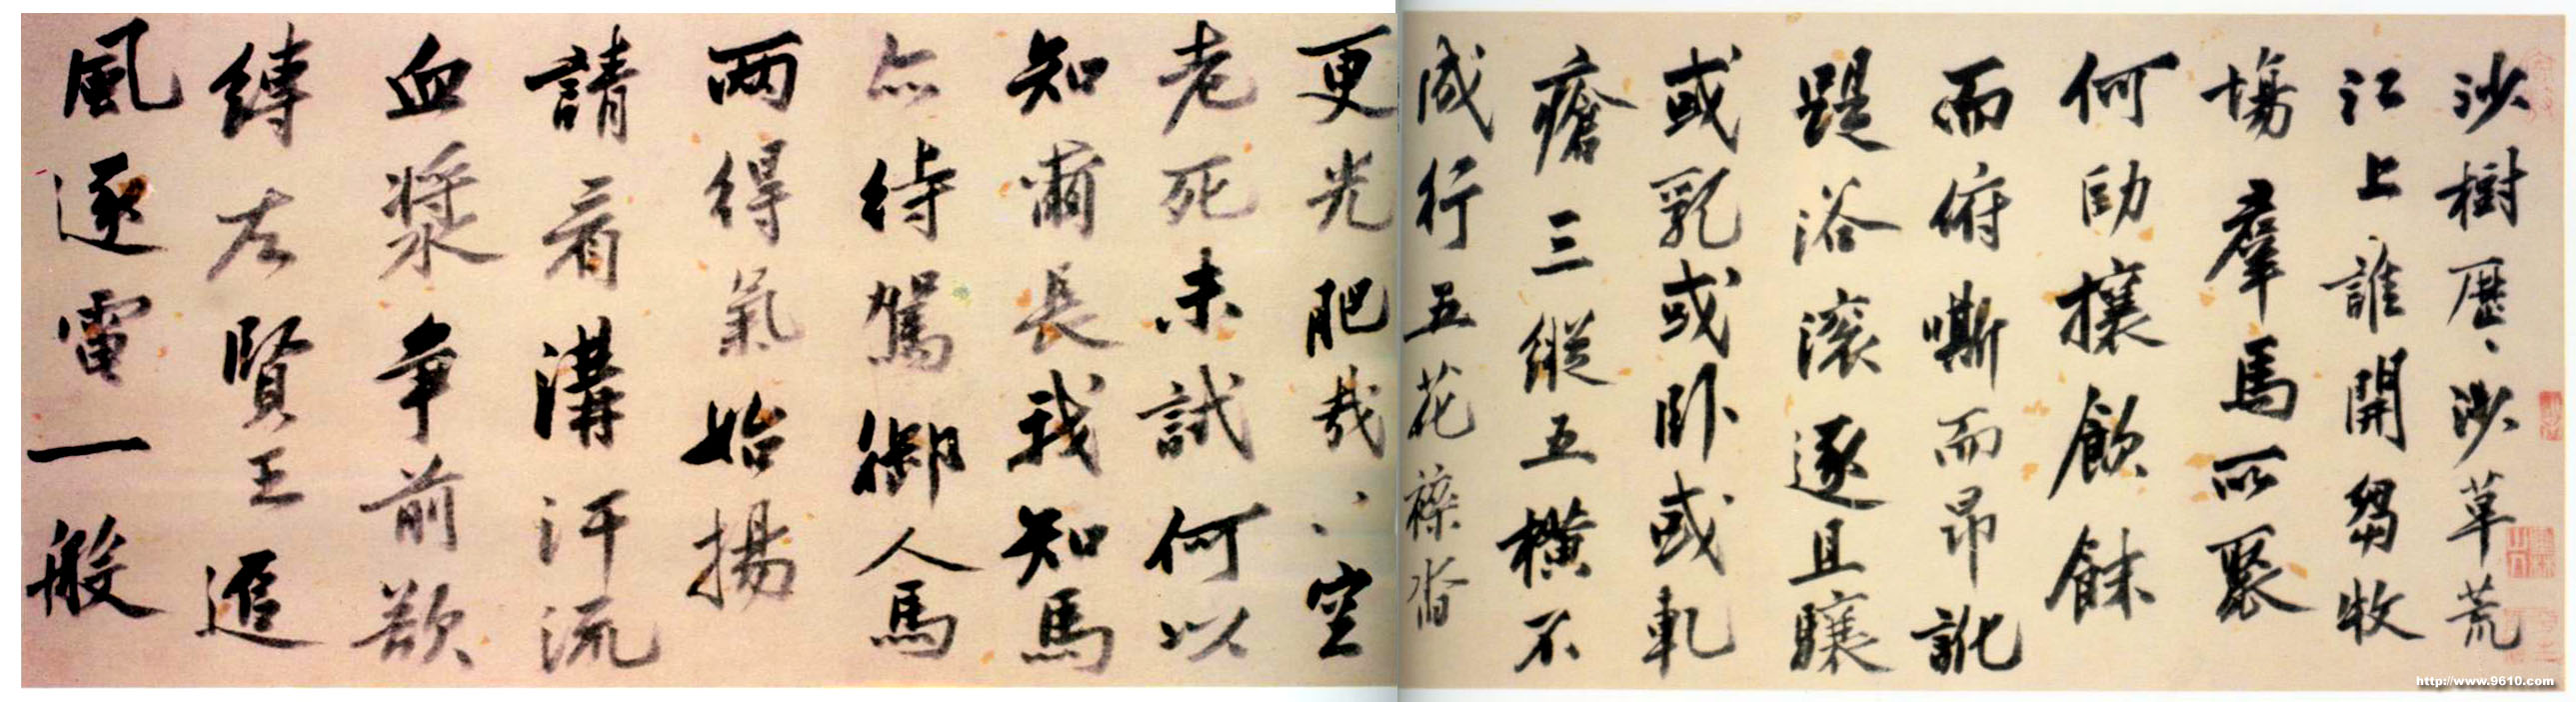 沙樹歷〻沙草荒
江上誰開芻牧
場羣馬所聚
何助攘飲餗
而俯嘶而昂訛
踶浴滾逐且驤
或乳或卧或軋
瘡三縱五橫不
成行五花襍沓
更光肥哉〻空
老死未試何以
知爾長我知馬
亦待駕御人馬
兩得氣始揚
請看溝汗流
血漿爭前欲
縛左賢王追
風逐電一般
http://www.9610.com